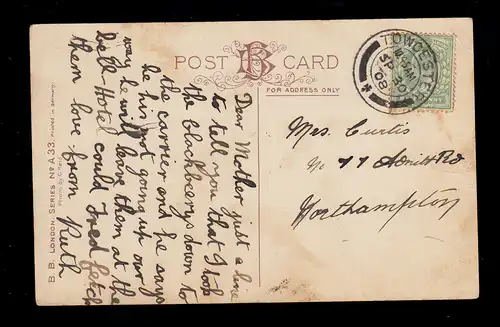 POST CARD
FOR ADDRESS ONLY
TOWCESTER
SP 30
08
Dear Mother just a line
to tell you that I took
the blackberrys down to
the carrier and he says
he his not going up our
way he will leave them at the
bell Hotel could Fred fetch
them love from Ruth
Mrs. Curtis
No 77 Adnitt Rd
Northampton
B. B. LONDON, SERIES No A 33. PRINTED IN GERMANY.